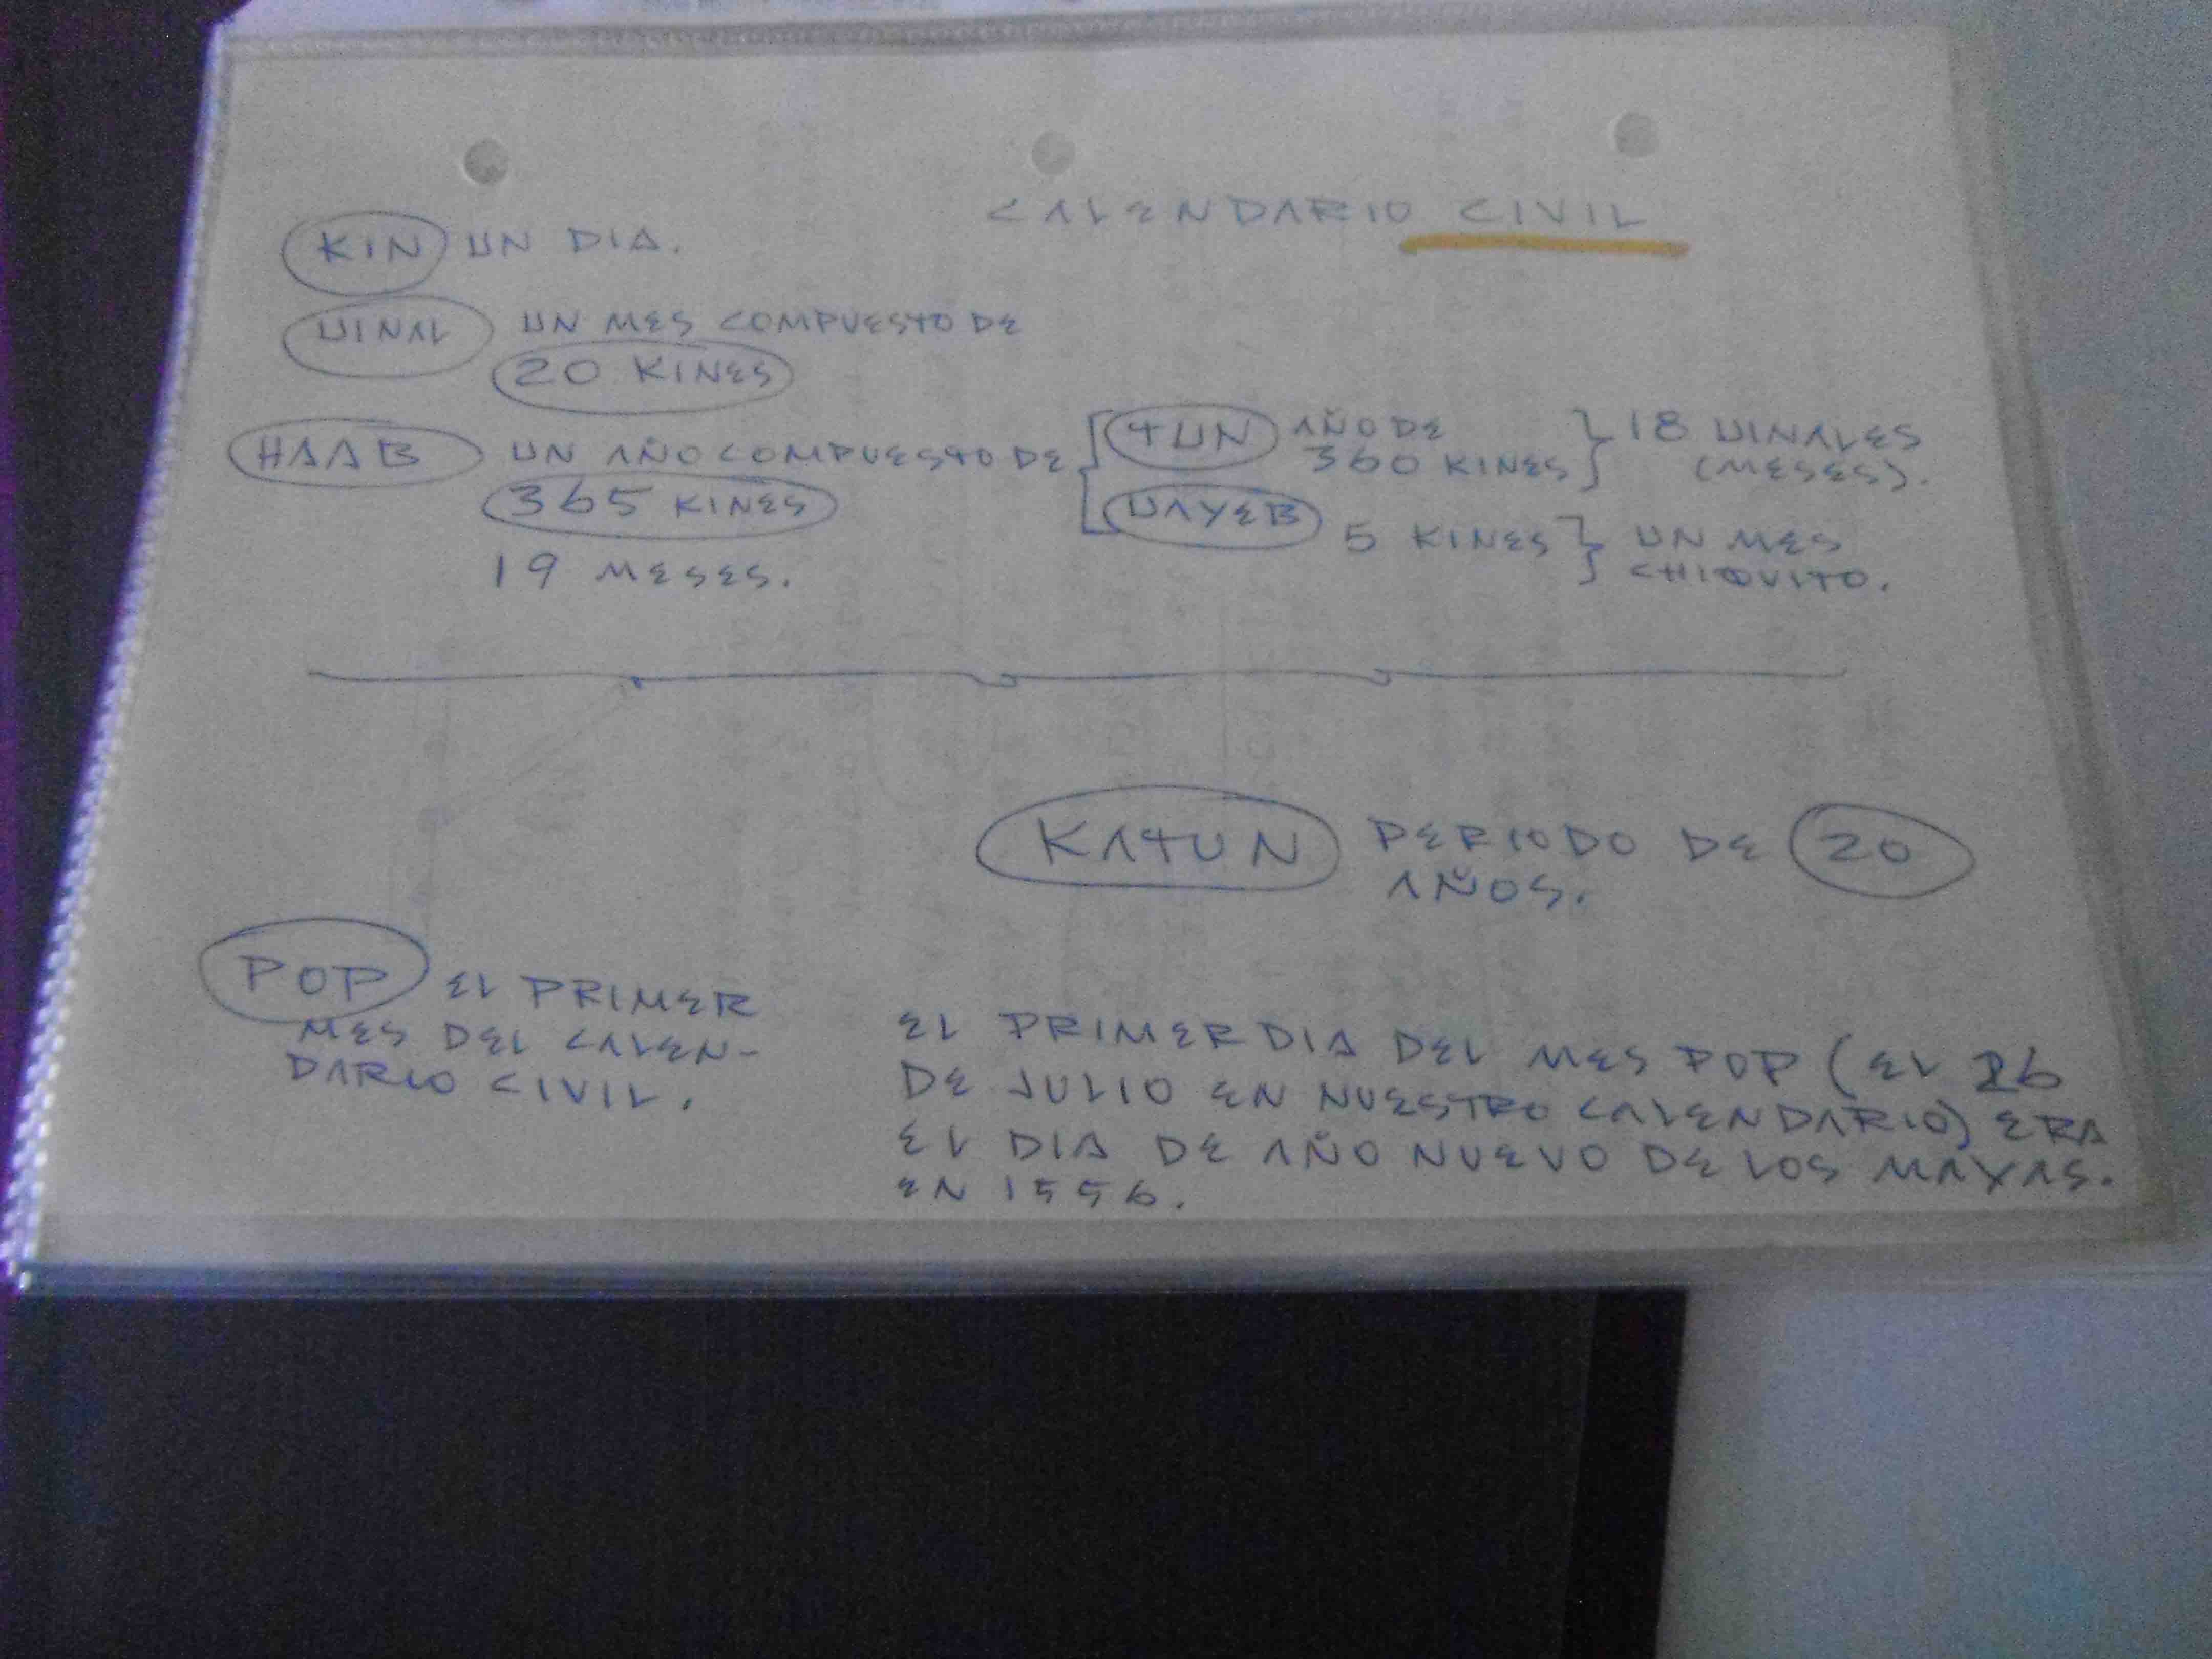 CALENDARIO CIVIL
KIN UN DIA.
UINAL UN MES COMPUESTO DE
20 KINES
HAAB UN AÑO COMPUESTO DE
365 KINES
19 MESES.
TUN AÑO DE
360 KINES
18 UINALES
(MESES).
UAYEB
5 KINES
UN MES
CHIQUITO.
KATUN PERIODO DE 20
AÑOS.
POP EL PRIMER
MES DEL CALEN-
DARIO CIVIL.
EL PRIMER DIA DEL MES POP (EL 26
DE JULIO EN NUESTRO CALENDARIO) ERA
EL DIA DE AÑO NUEVO DE LOS MAYAS.
EN 1556.